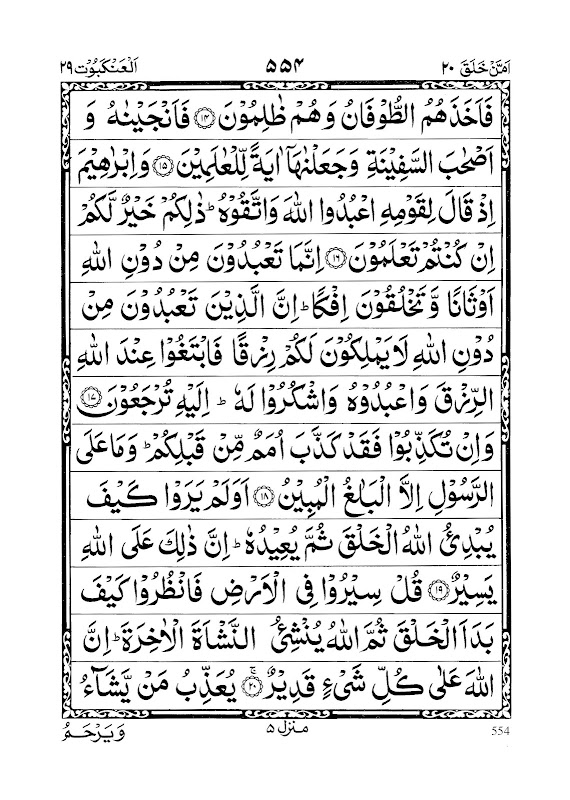 اَمَّنْ خَلَقَ ٢٠ ٥٥٤ اَلْعَنْكَبُوْت ٢٩
فَاَخَذَهُمُ الطُّوْفَانُ وَهُمْ ظٰلِمُوْنَ ۝١٤ فَاَنْجَيْنٰهُ وَ
اَصْحٰبَ السَّفِيْنَةِ وَجَعَلْنٰهَاۤ اٰيَةً لِّلْعٰلَمِيْنَ ۝١٥ وَاِبْرٰهِيْمَ
اِذْ قَالَ لِقَوْمِهِ اعْبُدُوا اللّٰهَ وَاتَّقُوْهُ ؕ ذٰلِكُمْ خَيْرٌ لَّكُمْ
اِنْ كُنْتُمْ تَعْلَمُوْنَ ۝١٦ اِنَّمَا تَعْبُدُوْنَ مِنْ دُوْنِ اللّٰهِ
اَوْثَانًا وَّتَخْلُقُوْنَ اِفْكًا ؕ اِنَّ الَّذِيْنَ تَعْبُدُوْنَ مِنْ
دُوْنِ اللّٰهِ لَا يَمْلِكُوْنَ لَكُمْ رِزْقًا فَابْتَغُوْا عِنْدَ اللّٰهِ
الرِّزْقَ وَاعْبُدُوْهُ وَاشْكُرُوْا لَهٗ ؕ اِلَيْهِ تُرْجَعُوْنَ ۝١٧
وَاِنْ تُكَذِّبُوْا فَقَدْ كَذَّبَ اُمَمٌ مِّنْ قَبْلِكُمْ ؕ وَمَا عَلَى
الرَّسُوْلِ اِلَّا الْبَلٰغُ الْمُبِيْنُ ۝١٨ اَوَلَمْ يَرَوْا كَيْفَ
يُبْدِئُ اللّٰهُ الْخَلْقَ ثُمَّ يُعِيْدُهٗ ؕ اِنَّ ذٰلِكَ عَلَى اللّٰهِ
يَسِيْرٌ ۝١٩ قُلْ سِيْرُوْا فِى الْاَرْضِ فَانْظُرُوْا كَيْفَ
بَدَاَ الْخَلْقَ ثُمَّ اللّٰهُ يُنْشِئُ النَّشْاَةَ الْاٰخِرَةَ ؕ اِنَّ
اللّٰهَ عَلٰى كُلِّ شَىْءٍ قَدِيْرٌ ۝٢٠ ۚ يُعَذِّبُ مَنْ يَّشَآءُ
وَيَرْحَمُ منزل ٥ 554